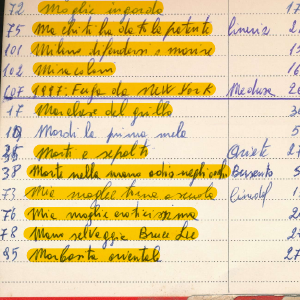 72 Moglie ingorda 17
75 Ma chi ti ha dato la patente Cineriz 2
101 Milano difendersi o morire 1
102 Miracolo 16
107 1997: Fuga da New York Medusa 20
17 Marchese del grillo 30
19 Mordi la prima mela 2
Morti e sepolti 27
38 Morte nella mano odio negli occhi 5
73 Mia moglie torna a scuola Cined 1
76 Mia moglie eroticissima 2
78 Mano selvaggia Bruce Lee 27
95 Margherita orientale 27